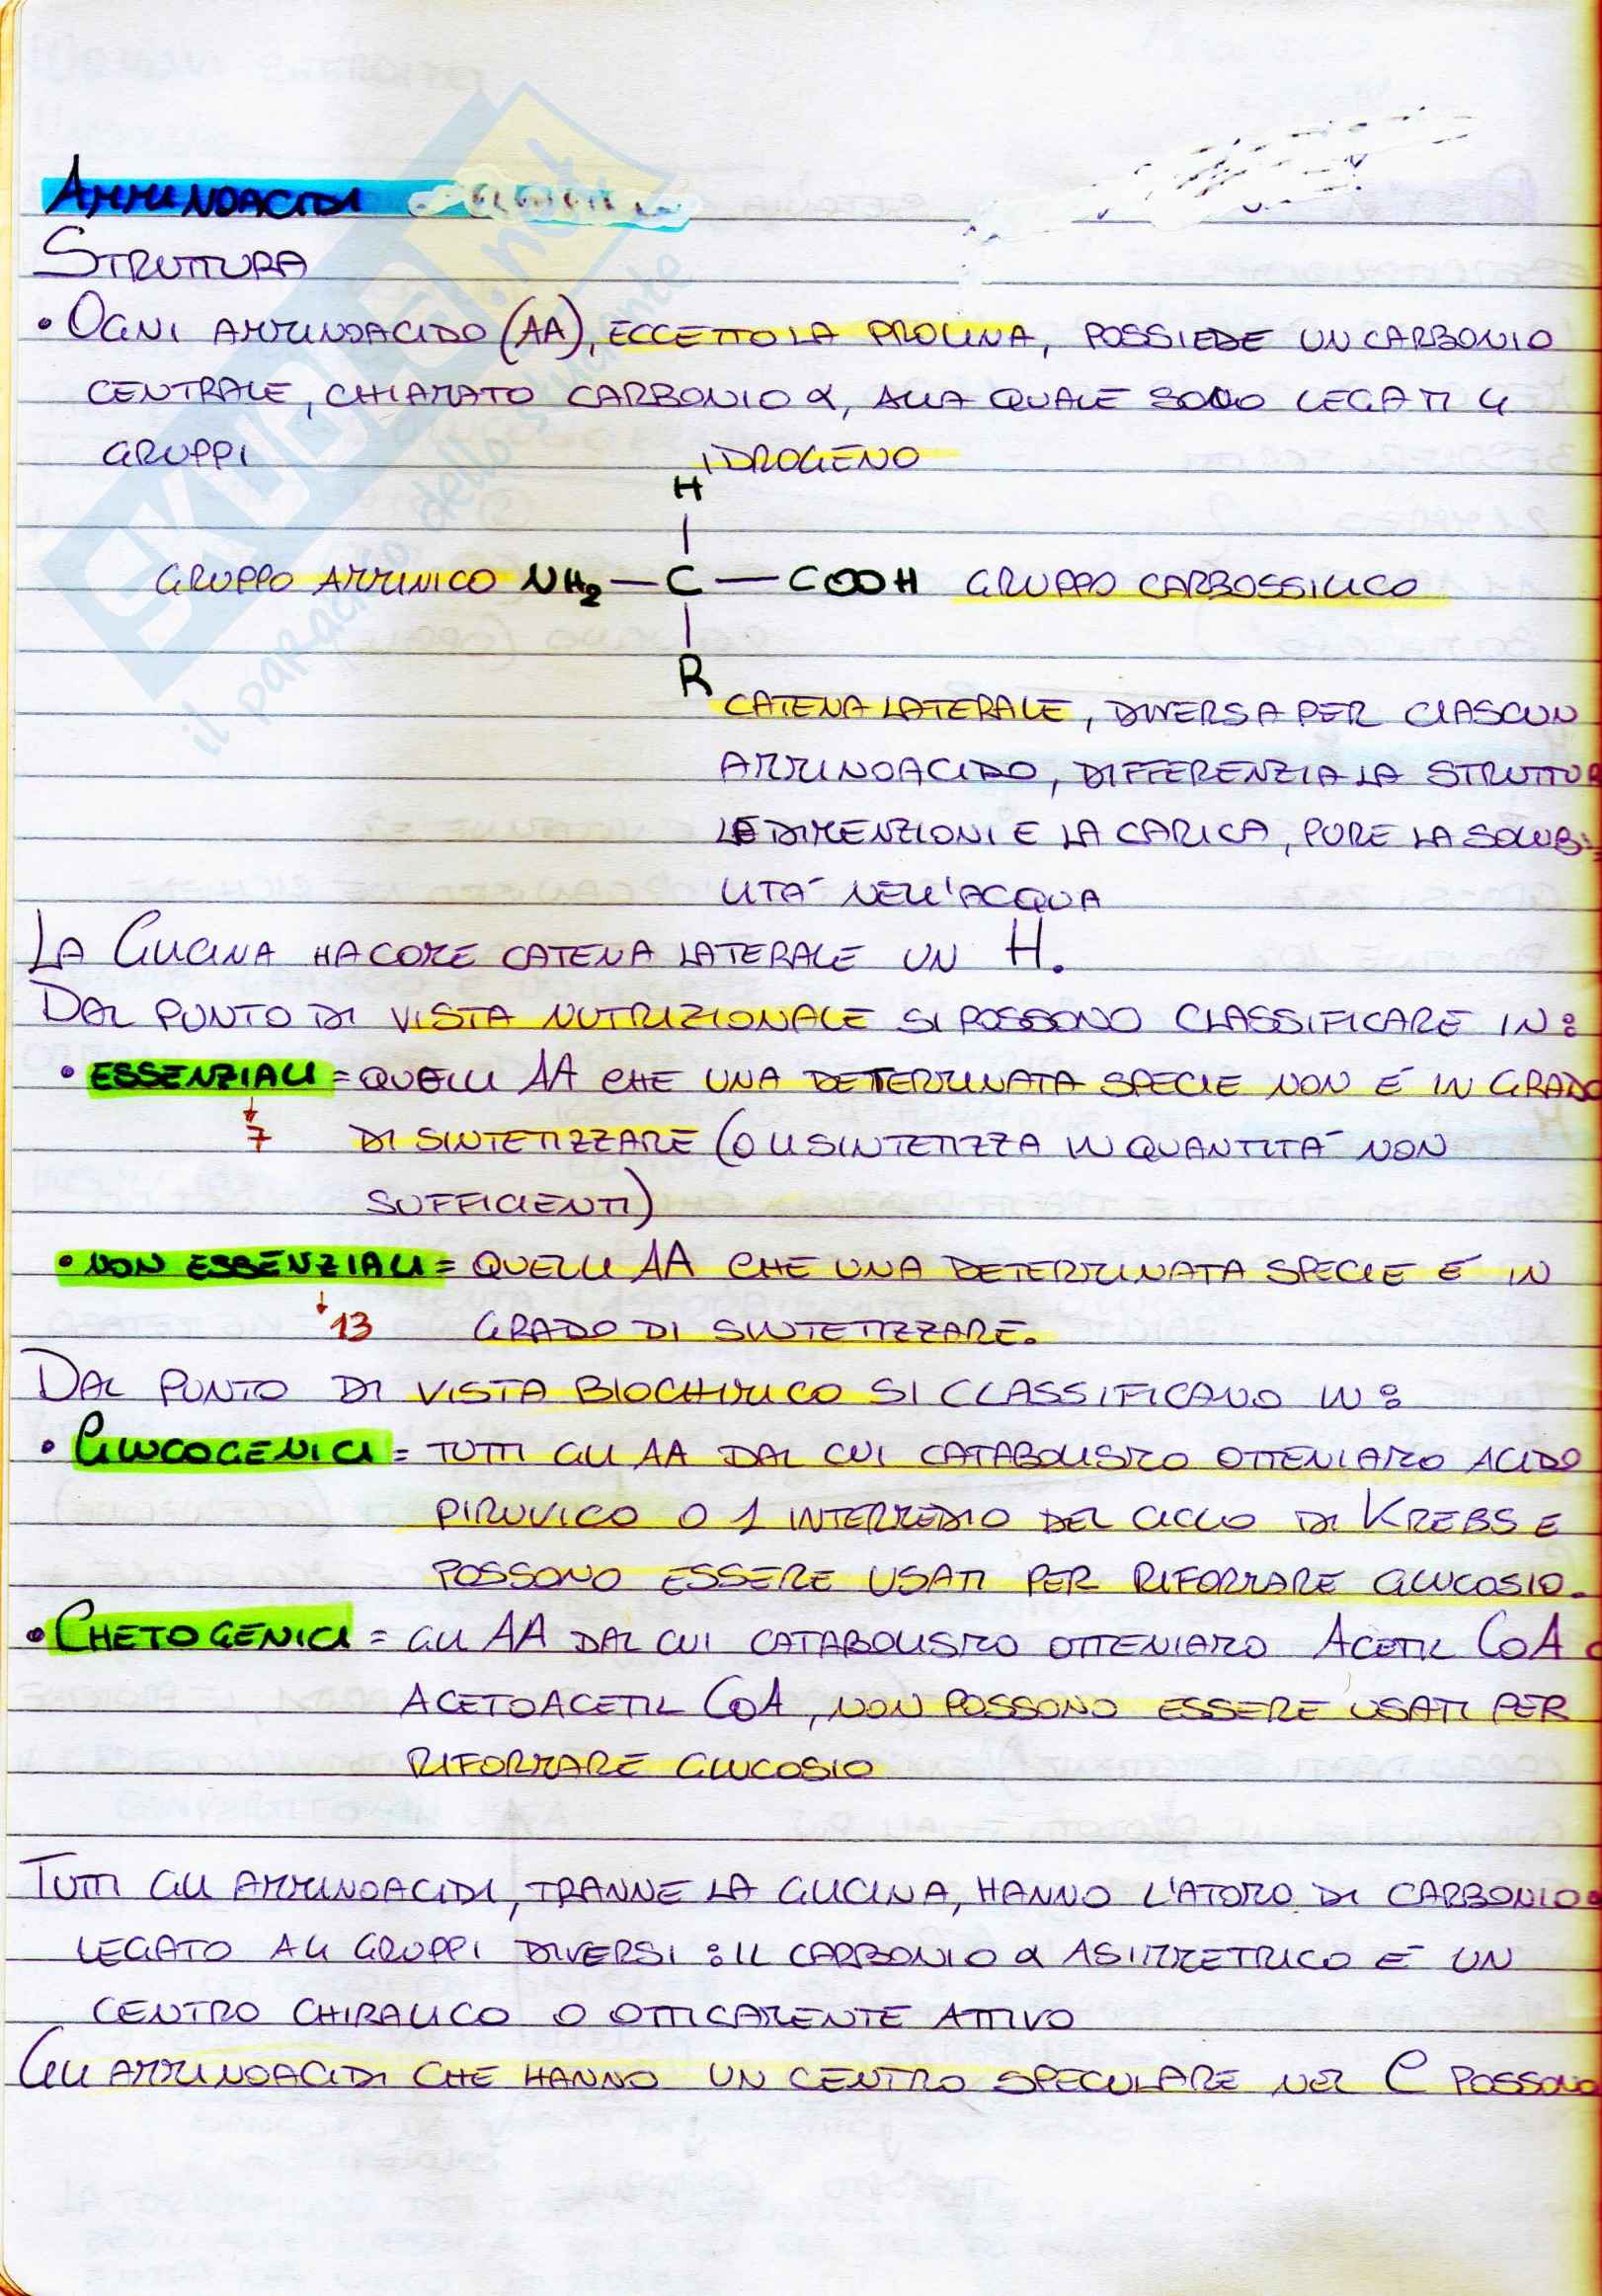 AMMINOACIDI
STRUTTURA
• OGNI AMMINOACIDO (AA), ECCETTO LA PROLINA, POSSIEDE UN CARBONIO
CENTRALE, CHIAMATO CARBONIO α, ALLA QUALE SONO LEGATI 4
GRUPPI
IDROGENO
H
GRUPPO AMMINICO NH2 — C — COOH GRUPPO CARBOSSILICO
R
CATENA LATERALE, DIVERSA PER CIASCUN
AMMINOACIDO, DIFFERENZIA LA STRUTTUR
LE DIMENZIONI E LA CARICA, PURE LA SOLUBI
LITÀ NELL'ACQUA
LA GLICINA HA COME CATENA LATERALE UN H.
DAL PUNTO DI VISTA NUTRIZIONALE SI POSSONO CLASSIFICARE IN:
• ESSENZIALI = QUELLI AA CHE UNA DETERMINATA SPECIE NON È IN GRADO
7 DI SINTETIZZARE (O LI SINTETIZZA IN QUANTITÀ NON
SUFFICIENTI)
• NON ESSENZIALI = QUELLI AA CHE UNA DETERMINATA SPECIE È IN
13 GRADO DI SINTETIZZARE.
DAL PUNTO DI VISTA BIOCHIMICO SI CLASSIFICANO IN:
• GLUCOGENICI = TUTTI GLI AA DAL CUI CATABOLISMO OTTENIAMO ACIDO
PIRUVICO O 1 INTERMEDIO DEL CICLO DI KREBS E
POSSONO ESSERE USATI PER RIFORMARE GLUCOSIO.
• CHETOGENICI = GLI AA DAL CUI CATABOLISMO OTTENIAMO ACETIL CoA O
ACETOACETIL CoA, NON POSSONO ESSERE USATI PER
RIFORMARE GLUCOSIO
TUTTI GLI AMMINOACIDI, TRANNE LA GLICINA, HANNO L'ATOMO DI CARBONIO α
LEGATO A 4 GRUPPI DIVERSI: IL CARBONIO α ASIMMETRICO È UN
CENTRO CHIRALICO O OTTICAMENTE ATTIVO
GLI AMMINOACIDI CHE HANNO UN CENTRO SPECULARE NEL C POSSONO
SKUOLA.net
il paradiso dello studente